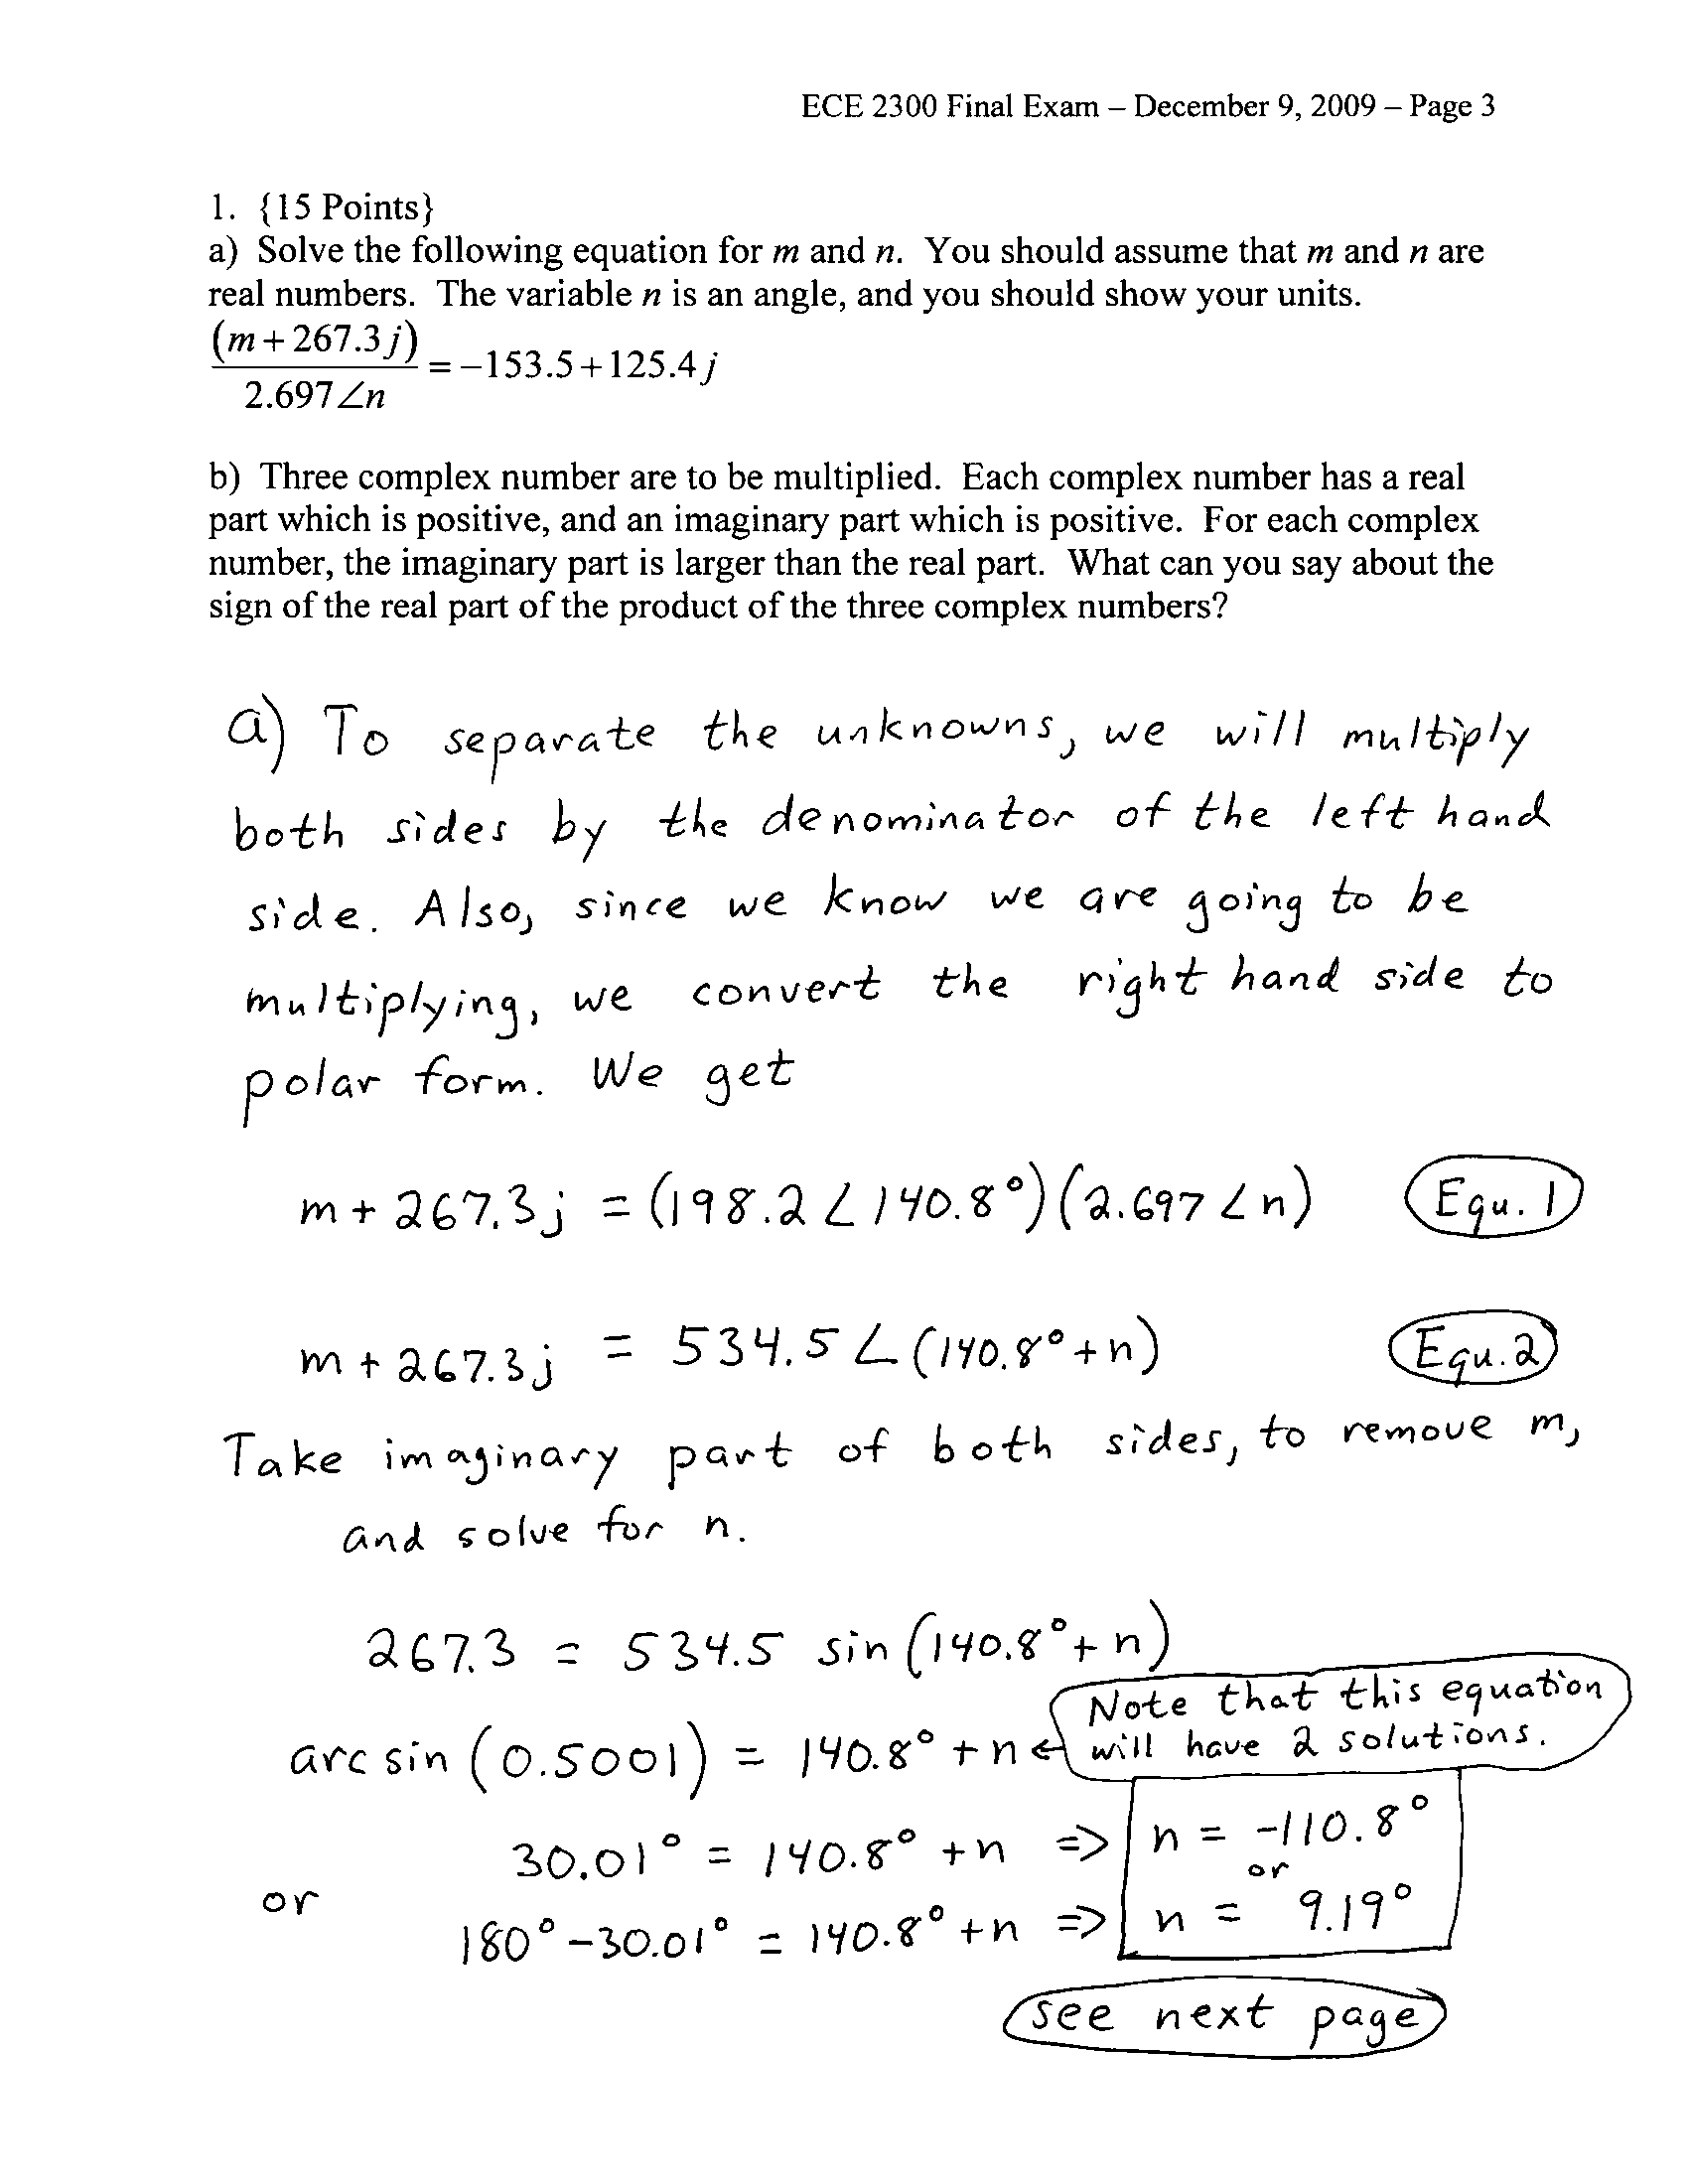 ECE 2300 Final Exam – December 9, 2009 – Page 3
1. {15 Points}
a) Solve the following equation for m and n. You should assume that m and n are
real numbers. The variable n is an angle, and you should show your units.
(m + 267.3j)
/ 2.697∠n = −153.5 + 125.4j
b) Three complex number are to be multiplied. Each complex number has a real
part which is positive, and an imaginary part which is positive. For each complex
number, the imaginary part is larger than the real part. What can you say about the
sign of the real part of the product of the three complex numbers?
a) To separate the unknowns, we will multiply
both sides by the denominator of the left hand
side. Also, since we know we are going to be
multiplying, we convert the right hand side to
polar form. We get
m + 267.3j = (198.2∠140.8°)(2.697∠n) Equ. 1
m + 267.3j = 534.5∠(140.8° + n) Equ. 2
Take imaginary part of both sides, to remove m,
and solve for n.
267.3 = 534.5 sin(140.8° + n)
Note that this equation
arcsin(0.5001) = 140.8° + n ← will have 2 solutions.
30.01° = 140.8° + n ⇒ n = -110.8°
or or
180° - 30.01° = 140.8° + n ⇒ n = 9.19°
see next page